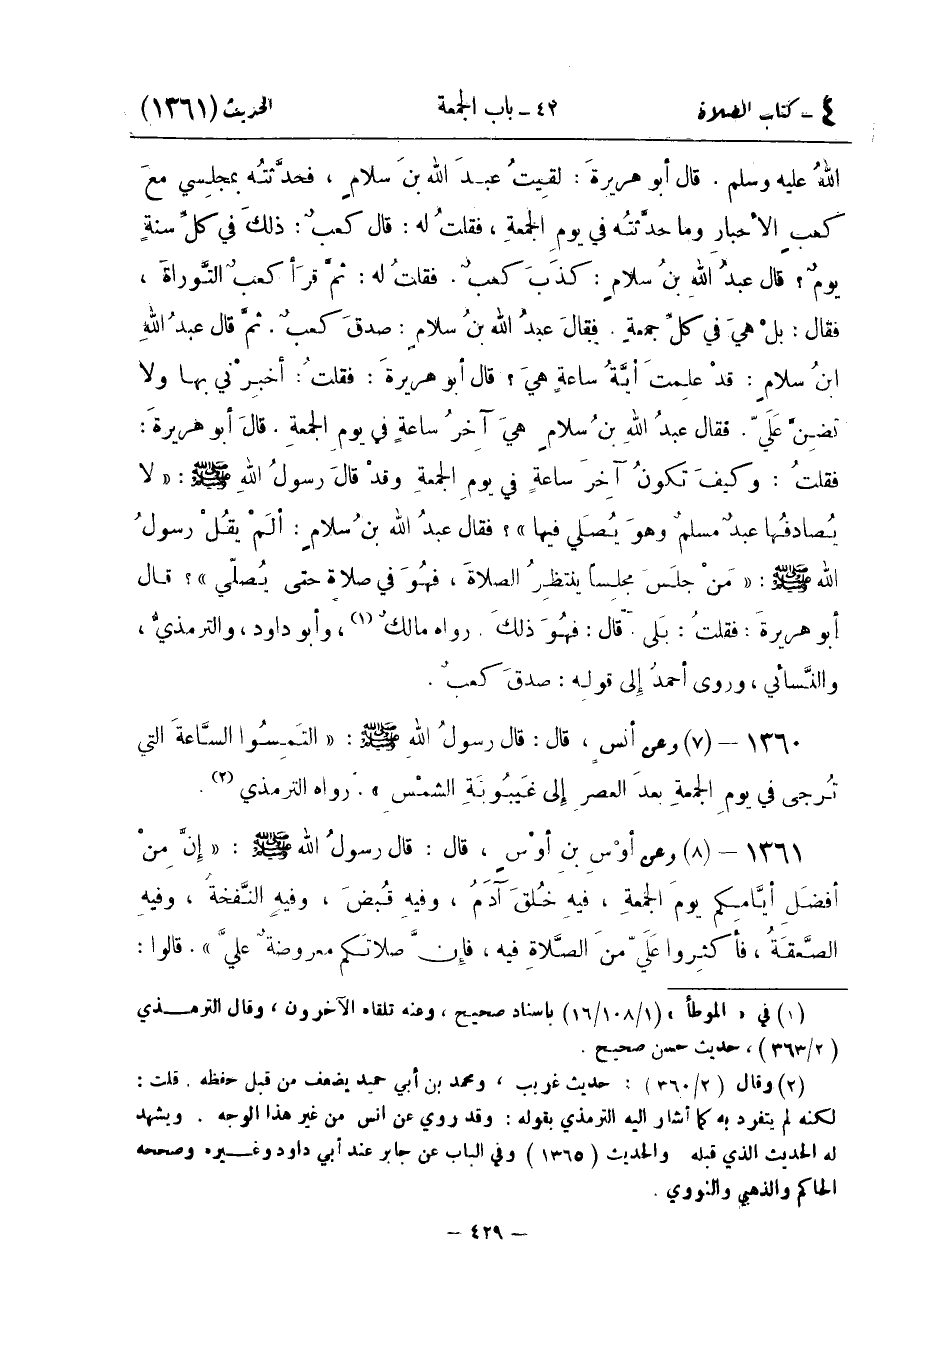 ٤ - كتاب الصلاة ٤٢ - باب الجمعة الحديث (١٣٦١)
اللهُ عليه وسلم . قال أبو هريرةَ : لقيتُ عبدَ الله بنَ سلامٍ ، فحدَّثتُه بمجلسي معَ
كعبِ الأحبار وما حدَّثتُه في يوم الجمعةِ ، فقلتُ له : قال كعبٌ : ذلكَ في كلِّ سنةٍ
يومٌ ؟ قال عبدُ اللهِ بنُ سلامٍ : كذَبَ كعبٌ . فقلتُ له : ثمَّ قرأ كعبٌ التَّوراةَ ،
فقال : بلْ هيَ في كلِّ جمعةٍ . فقالَ عبدُ الله بنُ سلامٍ : صدقَ كعبٌ . ثمَّ قال عبدُ اللهِ
ابنُ سلامٍ : قدْ علمتُ أيَّةُ ساعةٍ هيَ ؟ قال أبو هريرةَ : فقلتُ : أخبِرْني بها ولا
تضِنَّ عَلَيَّ . فقال عبدُ اللهِ بنُ سلامٍ هيَ آخرُ ساعةٍ في يومِ الجمعةِ . قالَ أبو هريرةَ :
فقلتُ : وكيفَ تكونُ آخرَ ساعةٍ في يومِ الجمعةِ وقدْ قالَ رسولُ اللهِ ﷺ : « لا
يُصادفُها عبدٌ مسلمٌ وهوَ يُصلي فيها » ؟ فقال عبدُ الله بنُ سلامٍ : ألَمْ يقُلْ رسولُ
الله ﷺ : « مَنْ جلَسَ مجلساً ينتظرُ الصلاةَ ، فهُوَ في صلاةٍ حتى يُصلّي » ؟ قال
أبو هريرةَ : فقلتُ : بَلى . قال : فهُوَ ذلكَ . رواه مالكٌ (١) ، وأبو داود ، والترمذيُّ ،
والنَّسائي ، وروى أحمدُ إلى قوله : صدقَ كعبٌ .
١٣٦٠ - (٧) وعن أنسٍ ، قال : قال رسولُ اللهِ ﷺ : « التَمِسُوا السَّاعةَ التي
تُرجى في يومِ الجمعةِ بعدَ العصرِ إلى غَيبُوبَةِ الشمْسِ » . رواه الترمذي (٢) .
١٣٦١ - (٨) وعن أوْسِ بنِ أوْسٍ ، قال : قال رسولُ الله ﷺ : « إنَّ مِنْ
أفضَلِ أيَّامِكم يومَ الجمعةِ ، فيه خُلقَ آدَمُ ، وفيه قُبضَ ، وفيهِ النَّفخةُ ، وفيهِ
الصَّعقةُ ، فأكثِروا عَلَيَّ منَ الصَّلاةِ فيه ، فإنَّ صلاتَكم معروضةٌ عليَّ » . قالوا :
(١) في « الموطأ » (١/١٠٨/١٦) باسناد صحيح ، وعنه تلقاه الآخرون ، وقال الترمذي
(٢/٣٦٣) ، حديث حسن صحيح .
(٢) وقال (٢/٣٦٠) : حديث غريب ، ومحمد بن أبي حميد يضعف من قبل حفظه . قلت :
لكنه لم يتفرد به كما أشار اليه الترمذي بقوله : وقد روي عن انس من غير هذا الوجه . ويشهد
له الحديث الذي قبله والحديث (١٣٦٥) وفي الباب عن جابر عند أبي داود وغيره وصححه
الحاكم والذهبي والنووي .
- ٤٢٩ -